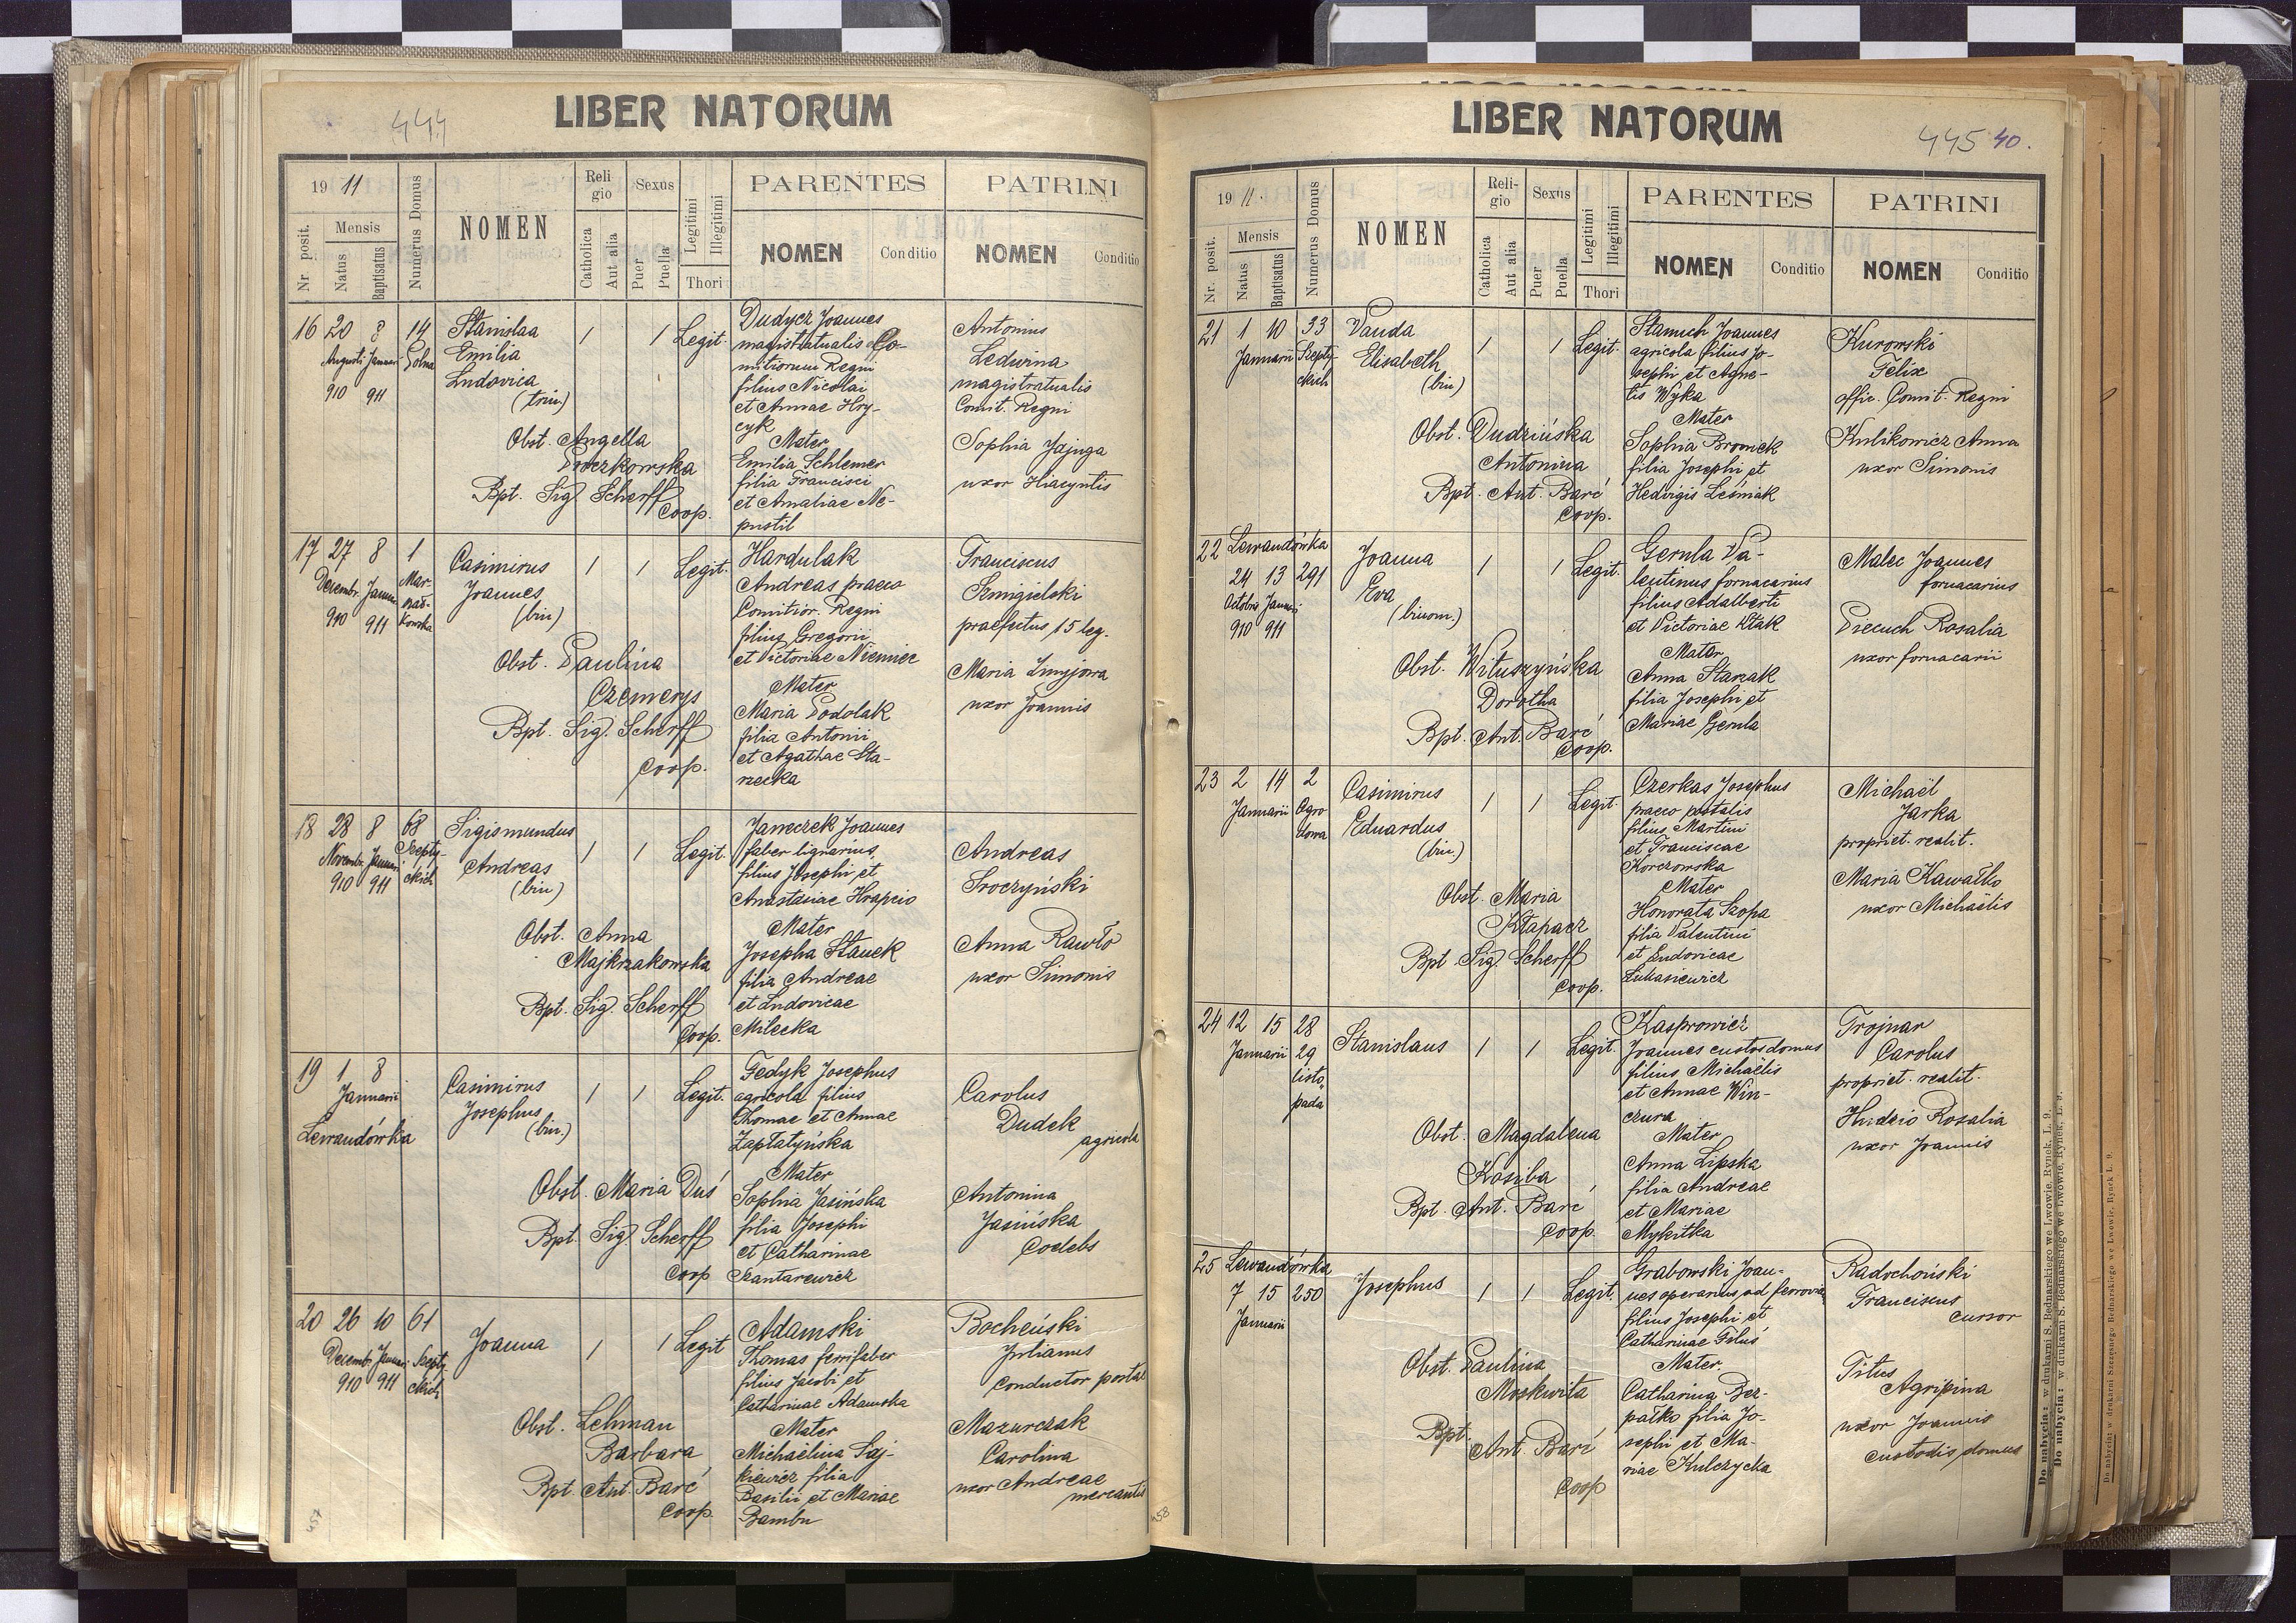 444
LIBER NATORUM
19 11
Mensis
Nr. posit.
Natus
Baptisatus
Numerus Domus
NOMEN
Reli
gio
Catholica
Aut alia
Sexus
Puer
Puella
Legitimi
Illegitimi
Thori
PARENTES
NOMEN
Conditio
PATRINI
NOMEN
Conditio
16 20 8 14
Augusti Januari Solna
910 911
Stanislaa
Emilia
Ludovica
(trin)
1 1 Legit.
Obst. Angella
Bpt. Sig. Scherff
Coop.
Dudycz Joannes
magistratualis Co-
mitiorum Regni
filius Nicolai
et Annae Hry-
cyk
Mater
Emilia Schlemer
filia Francisci
et Amaliae Ne-
pustil
Antonius
Ledwina
magistratualis
Comit. Regni
Sophia Jajuga
uxor Hiacyntis
17 27 8 1
Decembr. Januari Mar-
910 911 kowska
Casimirus
Joannes
(bin)
1 1 Legit.
Obst. Paulina
Czemerys
Bpt. Sig. Scherff
Coop.
Hardulak
Andreas praeco
Comitior. Regni
filius Gregorii
et Victoriae Niemiec
Mater
Maria Podolak
filia Antonii
et Agathae Sta-
recka
Franciscus
Szmigielski
praefectus 15 leg.
Maria Zmyjowa
uxor Joannis
18 28 8 68
Novembr. Januari Szepty-
910 911 ckich
Sigismundus
Andreas
(bin)
1 1 Legit.
Obst. Anna
Majkrzakowska
Bpt. Sig. Scherff
Coop.
Janeczek Joannes
faber lignarius,
filius Josephi et
Anastasiae Hrapcio
Mater
Josepha Stanek
filia Andreae
et Ludovicae
Milecka
Andreas
Sroczyński
Anna Rawło
uxor Simonis
19 1 8
Januarii
Lewandówka
Casimirus
Josephus
(bin.)
1 1 Legit.
Obst. Maria Duś
Bpt. Sig. Scherff
Coop
Fedyk Josephus
agricola filius
Thomae et Annae
Zapłatyńska
Mater
Sophia Jasińska
filia Josephi
et Catharinae
Szantarewicz
Carolus
Dudek
agricola
Antonina
Jasińska
Coelebs
20 26 10 61
Decembr. Januari Szepty
910 911 ckich
Joanna
1 1 Legit
Obst. Lehman
Barbara
Bpt. Ant. Barć
Coop.
Adamski
Thomas ferrifaber
filius Jacobi et
Catharinae Adamska
Mater
Michaëlina Saj-
kiewicz filia
Basilii et Mariae
Bambu
Bocheński
Julianus
conductor postal
Mazurczak
Carolina
uxor Andreae
mercantis
457
LIBER NATORUM
445 40.
19 11.
Mensis
Nr. posit.
Natus
Baptisatus
Numerus Domus
NOMEN
Reli-
gio
Catholica
Aut alia
Sexus
Puer
Puella
Legitimi
Illegitimi
Thori
PARENTES
NOMEN
Conditio
PATRINI
NOMEN
Conditio
21 1 10 33
Januarii Szepty-
ckich
Vanda
Elisabeth
(bin)
1 1 Legit.
Obst. Dudzińska
Antonina
Bpt. Ant. Barć
Coop.
Stamuch Joannes
agricola filius Jo-
sephi et Agne-
tis Wyka
Mater
Sophia Bromek
filia Josephi et
Hedvigis Leśniak
Kurowski
Felix
offic. Comit. Regni
Kulikowicz Anna
uxor Simonis
22 Lewandówka
24 13 291
Octobris Januari
910 911
Joanna
Eva
(binom.)
1 1 Legit.
Obst. Wituszyńska
Dorotha
Bpt. Ant. Barć
Coop.
Gerula Va-
lentinus fornacarius
filius Adalberti
et Victoriae Ptak
Mater
Anna Starzak
filia Josephi et
Mariae Gerula
Malec Joannes
fornacarius
Piecuch Rosalia
uxor fornacarii
23 2 14 2
Januarii Ogro
dowa
Casimirus
Eduardus
(bin.)
1 1 Legit.
Obst. Maria
Kłapacz
Bpt. Sig. Scherff
Coop.
Czerkas Josephus
praeco postalis
filius Martini
et Franciscae
Korczowska
Mater
Honorata Szopa
filia Valentini
et Ludovicae
Łukasiewicz
Michaël
Jarka
propriet. realit.
Maria Kawałko
uxor Michaëlis
24 12 15 28
Januarii 29
listo
pada
Stanislaus
1 1 Legit.
Obst. Magdalena
Kosiba
Bpt. Ant. Barć
Coop.
Kasprowicz
Joannes custos domus
filius Michaëlis
et Annae Win-
czura
Mater
Anna Lipska
filia Andreae
et Mariae
Mykitka
Trojnar
Carolus
propriet. realit.
Hudzio Rosalia
uxor Joannis
25 Lewandówka
7 15 250
Januarii
Josephus
1 1 Legit.
Obst. Paulina
Moskwita
Bpt.
Ant. Barć
Coop
Grabowski Joan-
nes operarius ad ferroviam
filius Josephi et
Catharinae Filuś
Mater.
Catharina Bez-
pałko filia Jo-
sephi et Ma-
riae Kulczycka
Radochoński
Franciscus
cursor
Titus
Agripina
uxor Joannis
custodis domus
458
Do nabycia: w drukarni S. Bednarskiego we Lwowie, Rynek, L. 9.
Do nabycia: w drukarni S. Bednarskiego we Lwowie, Rynek, L. 9.
Do nabycia: w drukarni Szczęsnego Bednarskiego we Lwowie, Rynek L. 9.